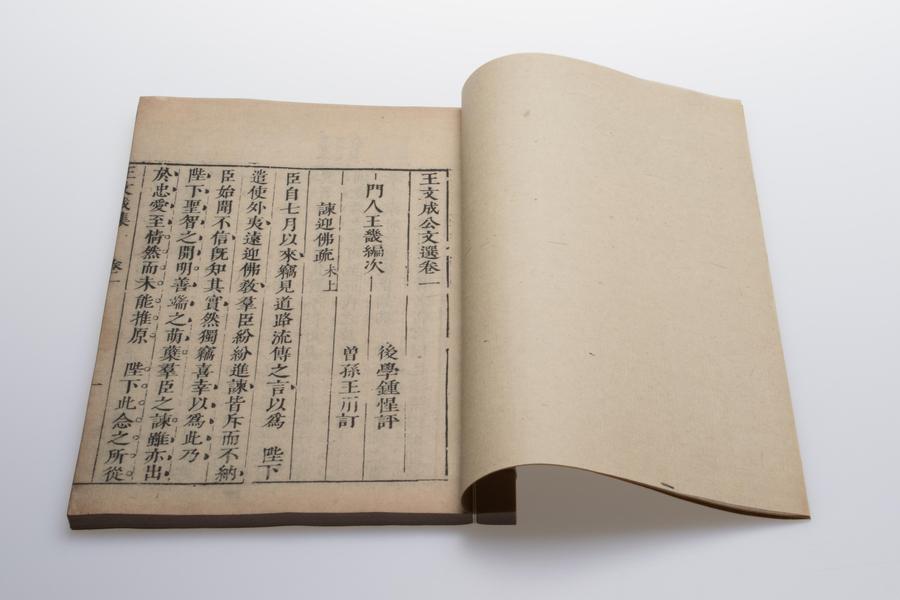 王文成公文選卷一
門人王畿編次
後學鍾惺評
曾孫王 訂
諫迎佛疏未上
臣自七月以來竊見道路流傳之言以爲 陛下
遣使外夷遠迎佛教羣臣紛紛進諫皆斥而不納
臣始聞不信旣知其實然獨竊喜幸以爲此乃
陛下聖智之開明善端之萌蘖羣臣之諫雖亦出
於忠愛至情然而未能推原 陛下此念之所從
王文成集 卷一 一